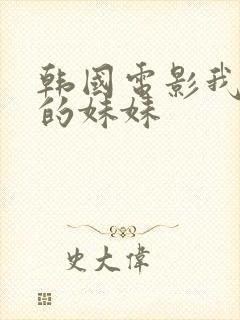 韩國電影我
的妹妹
史大偉